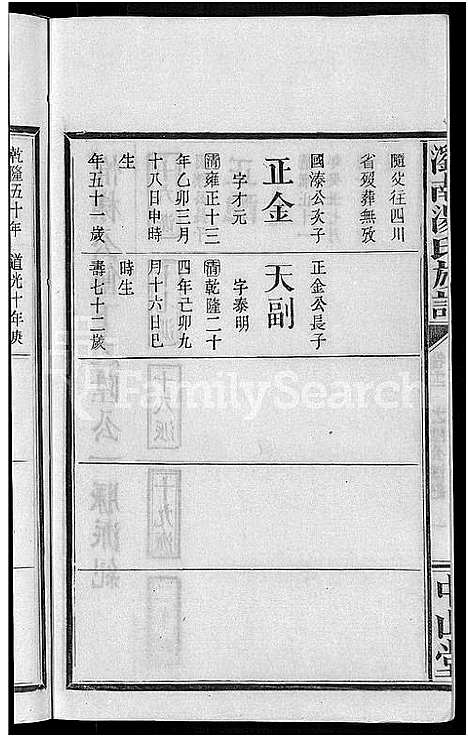 隨父往四川
省歿葬無攷
國溱公次子
正金
字才元
清雍正十三
年乙卯三月
十八日申時
生
年五十一歲
正金公長子
天副
字泰明
清乾隆二十
四年己卯九
月十六日巳
時生
壽七十二歲
湯氏族譜
中山堂
乾隆五十年
道光十年庚
FamilySearch